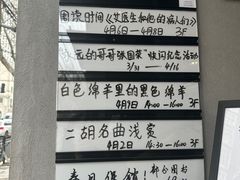 阅读时间《艾医生和他的病人们》
4月6日-4月8日 3F
哥哥张国荣"快闪纪念活动
3/31 — 4/16
白色绵羊里的黑色绵羊
4月1日 14:00-16:00 3F
二胡名曲浅赏
4月2日 14:30-16:00 3F
春日促销!